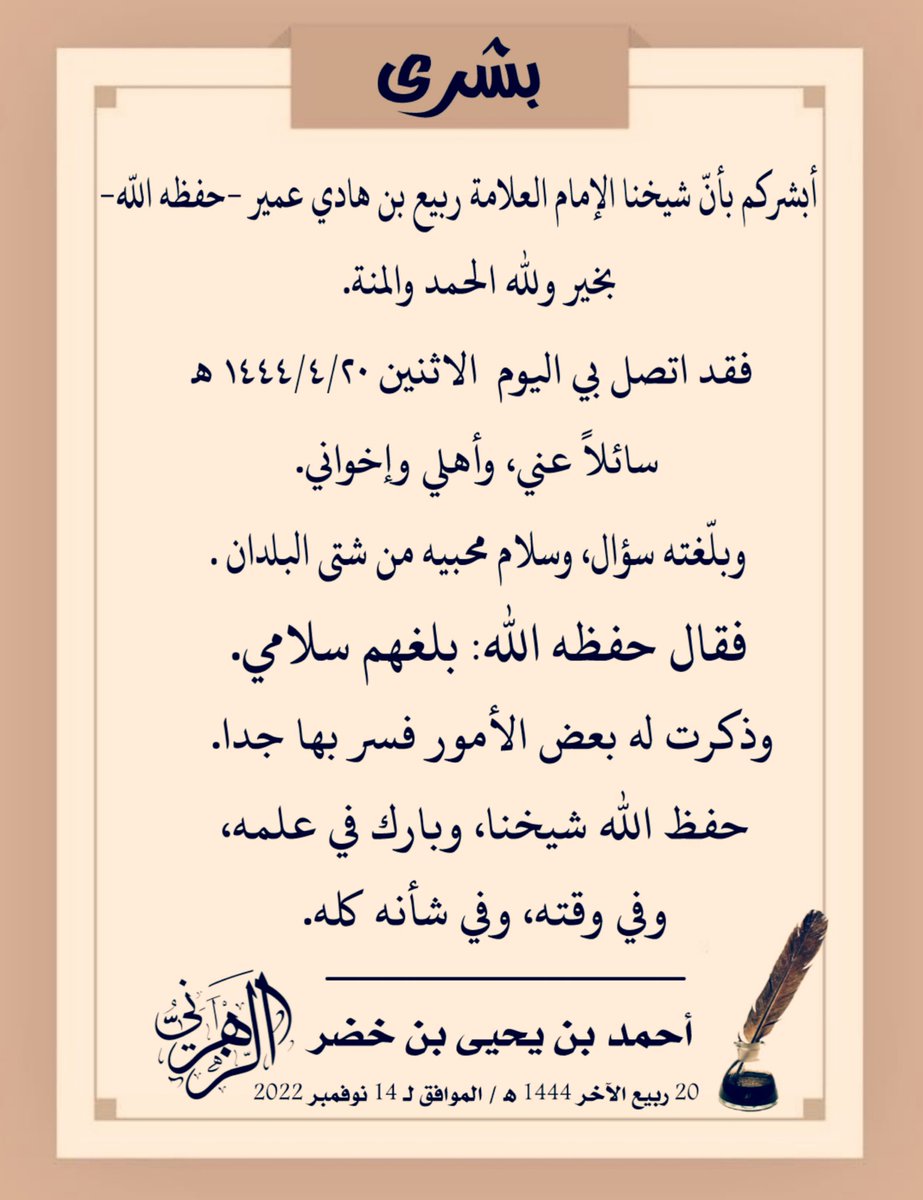 بشرى
أبشركم بأنّ شيخنا الإمام العلامة ربيع بن هادي عمير -حفظه الله-
بخير ولله الحمد والمنة.
فقد اتصل بي اليوم الاثنين ١٤٤٤/٤/٢٠ هـ
سائلاً عني، وأهلي وإخواني.
وبلّغته سؤال، وسلام محبيه من شتى البلدان .
فقال حفظه الله: بلغهم سلامي.
وذكرت له بعض الأمور فسر بها جدا.
حفظ الله شيخنا، وبارك في علمه،
وفي وقته، وفي شأنه كله.
أحمد بن يحيى بن خضر
الزهراني
20 ربيع الآخر 1444 هـ / الموافق لـ 14 نوفمبر 2022